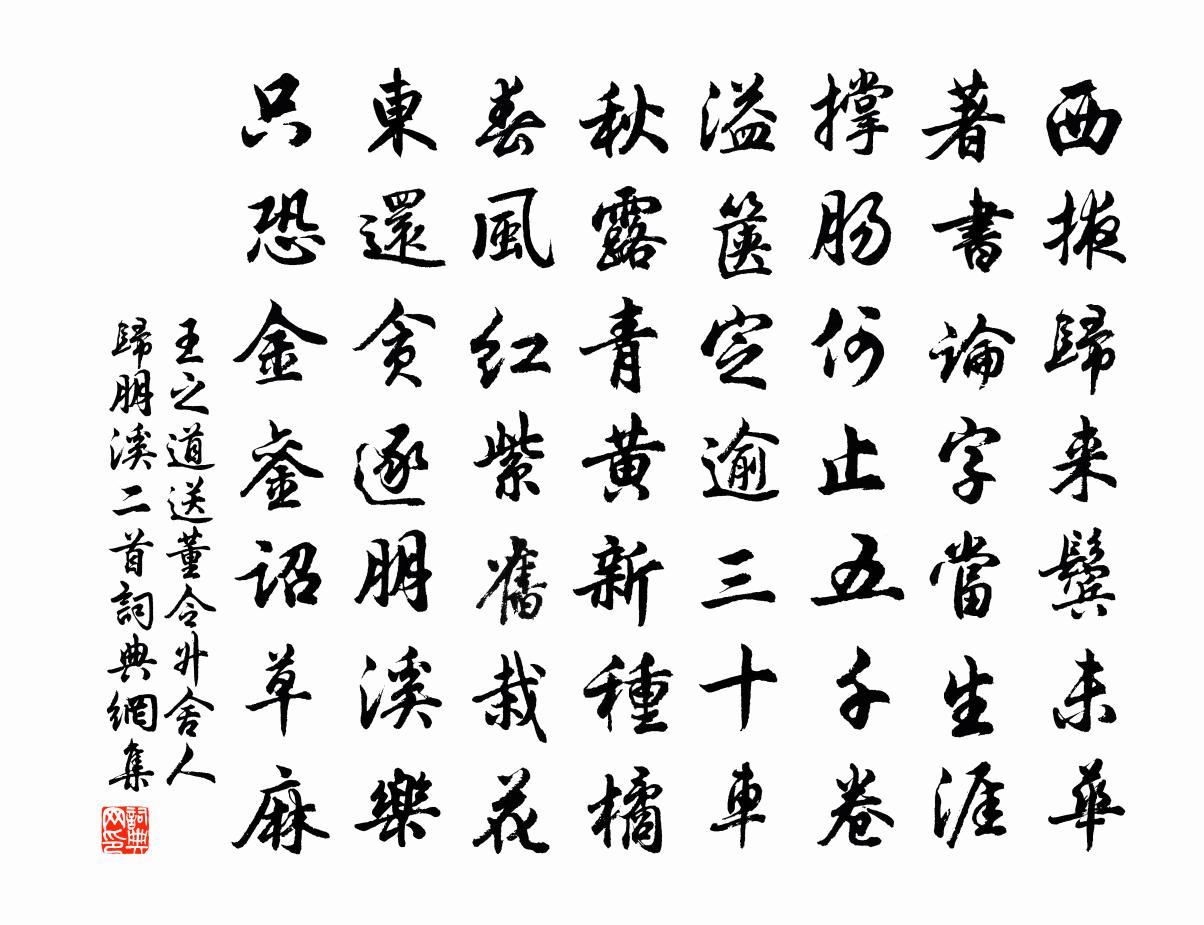 西掖歸来鬓未華
著書論字當生涯
撑肠何止五千卷
溢箧定逾三十車
秋露青黄新種橘
春風红紫舊栽花
東還贪逐朋溪樂
只恐金銮詔草麻
王之道送董令升舍人
歸朋溪二首詞典網集
詞典
网印